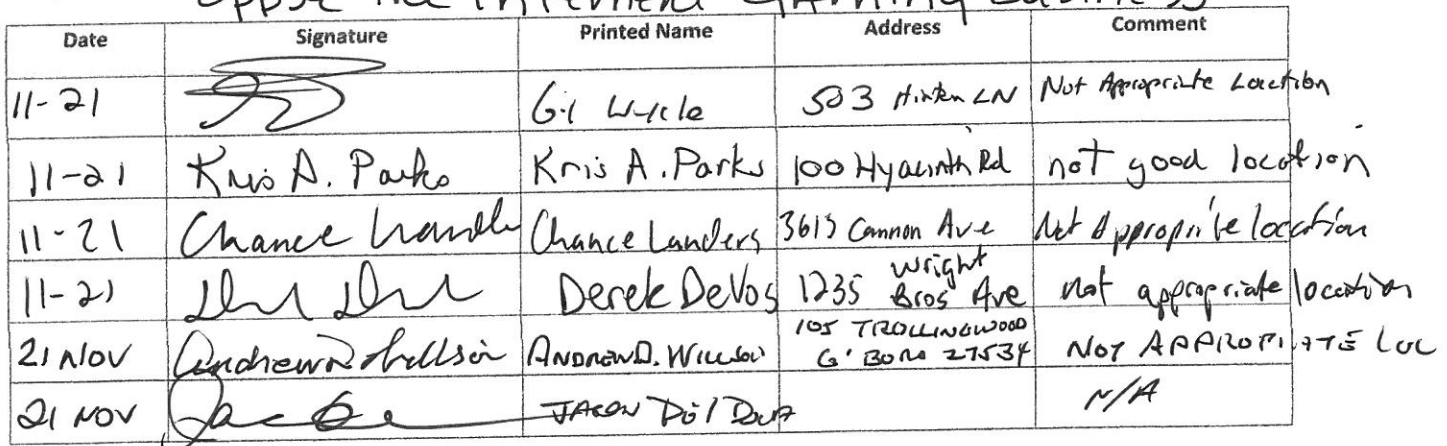 oppose the internet gaming business
Date Signature Printed Name Address Comment
11-21 Gil 503 LN Not Appropriate Location
11-21 Kris A. Parks Kris A. Parks 100 Hyacinth Rd not good location
11-21 Chance Landers Chance Landers 3613 Cannon Ave Not Appropriate location
11-21 Derek DeVos 1235 Wright Bros Ave not appropriate location
21 NOV Andrew D. Willson ANDREW D. WILLSON 105 TROLLINGWOOD G'BORO 27534 NOT APPROPIATE LOC
21 NOV JASON N/A